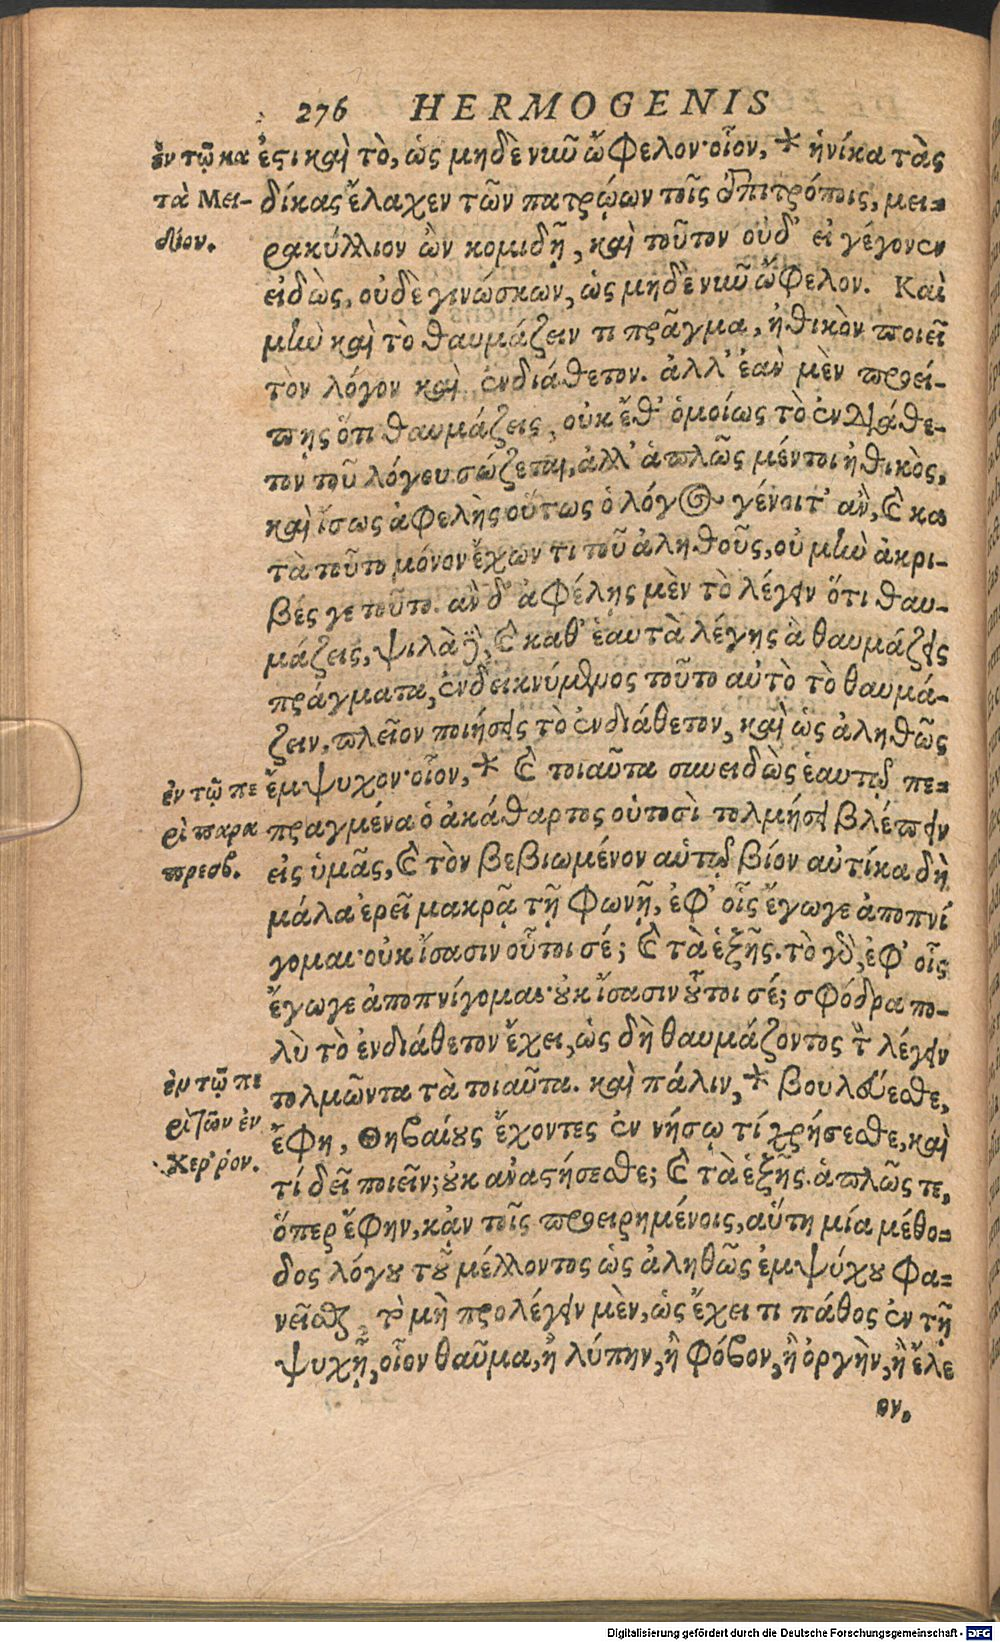 276 HERMOGENIS
ἐν τῷ κα
τὰ Μει-
δίου.
ἐστι καὶ τὸ, ὡς μηδὲ νιοῦ ὤφελον· οἷον, * ἡνίκα τὰς
δίκας ἔλαχεν τῶν πατρῴων τοῖς ἐπιτρόποις, μει-
ρακύλλιον ὢν κομιδῇ, καὶ τοῦτον οὐδ' εἰ γέγονεν
εἰδὼς, οὐδὲ γινώσκων, ὡς μηδὲ νιοῦ ὤφελον. Καὶ
μὴν καὶ τὸ θαυμάζειν τι πρᾶγμα, ἠθικὸν ποιεῖ
τὸν λόγον καὶ ἐνδιάθετον. ἀλλ' ἐὰν μὲν προεί-
πῃς ὅτι θαυμάζεις, οὐκ ἔθ' ὁμοίως τὸ ἐνδιάθε-
τον τοῦ λόγου σώζεται, ἀλλ' ἁπλῶς μέντοι ἠθικὸς,
καὶ ἴσως ἀφελὴς οὕτως ὁ λόγος γένοιτ' ἂν, καὶ κα
τὰ τοῦτο μόνον ἔχων τι τοῦ ἀληθοῦς, οὐ μὴν ἀκρι-
βές γε τοῦτο. ἂν δ' ἀφέλῃς μὲν τὸ λέγειν ὅτι θαυ-
μάζεις, ψιλὰ δὲ, καὶ καθ' ἑαυτὰ λέγῃς ἃ θαυμάζεις
πράγματα, ἐνδεικνύμενος τοῦτο αὐτὸ τὸ θαυμά-
ζειν, πλεῖον ποιήσεις τὸ ἐνδιάθετον, καὶ ὡς ἀληθῶς
ἐν τῷ πε
ρὶ παρα
πρεσβ.
ἔμψυχον· οἷον, * καὶ τοιαῦτα συνειδὼς ἑαυτῷ πε-
πραγμένα ὁ ἀκάθαρτος οὑτοσὶ τολμήσει βλέπειν
εἰς ὑμᾶς, καὶ τὸν βεβιωμένον αὑτῷ βίον αὐτίκα δὴ
μάλα ἐρεῖ μακρᾷ τῇ φωνῇ, ἐφ' οἷς ἔγωγε ἀποπνί
γομαι· οὐκ ἴσασιν οὗτοι σέ; καὶ τὰ ἑξῆς. τὸ γὰρ, ἐφ' οἷς
ἔγωγε ἀποπνίγομαι· οὐκ ἴσασιν οὗτοι σέ; σφόδρα πο-
λὺ τὸ ἐνδιάθετον ἔχει, ὡς δὴ θαυμάζοντος τὸν λέγειν
ἐν τῷ πε
ρὶ τῶν ἐν
Χερρόν.
τολμῶντα τὰ τοιαῦτα. καὶ πάλιν, * βουλεύεσθε,
ἔφη, Θηβαίους ἔχοντες ἐν νήσῳ τί χρήσεσθε, καὶ
τί δεῖ ποιεῖν; οὐκ ἀναστήσεσθε; καὶ τὰ ἑξῆς. ἁπλῶς τε,
ὅπερ ἔφην, κἀν τοῖς προειρημένοις, αὕτη μία μέθο-
δος λόγου τοῦ μέλλοντος ὡς ἀληθῶς ἐμψύχου φα-
νεῖσθαι, τὸ μὴ προλέγειν μὲν, ὡς ἔχει τι πάθος ἐν τῇ
ψυχῇ, οἷον θαῦμα, ἢ λύπην, ἢ φόβον, ἢ ὀργὴν, ἢ ἔλε
ον,
Digitalisierung gefördert durch die Deutsche Forschungsgemeinschaft - DFG